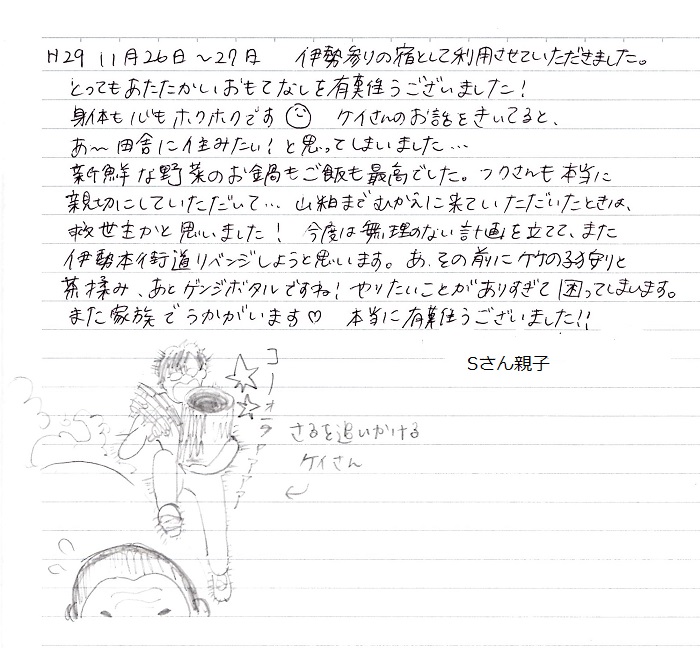 H29 11月26日〜27日　伊勢参りの宿として利用させていただきました。
とってもあたたかいおもてなしを有難うございました！
身体も心もホクホクです　ケイさんのお話をきいてると、
あ〜田舎に住みたい！と思ってしまいました…
新鮮な野菜のお鍋もご飯も最高でした。フクさんも本当に
親切にしていただいて…山粕までむかえに来ていただいたときは、
救世主かと思いました！　今度は無理のない計画を立てて、また
伊勢本街道リベンジしようと思います。あ、その前に竹の子狩りと
茶揉み、あとゲンジボタルですね！やりたいことがありすぎて困ってしまいます。
また家族でうかがいます♡　本当に有難うございました!!
Sさん親子
コノォラァァァァ
さるを追いかける
ケイさん